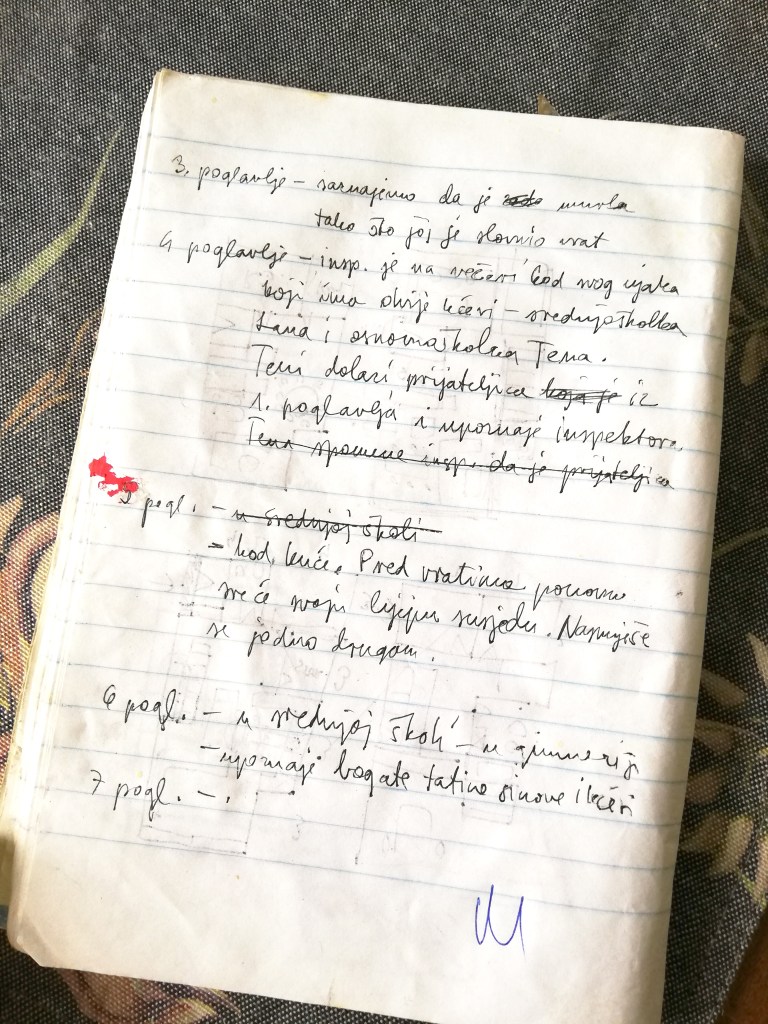 3. poglavlje – saznajemo da je umrla
tako što joj je slomio vrat
4 poglavlje – insp. je na večeri kod svog ujaka
koji ima dvije kćeri – srednjoškolka
Lana i osnovnoškolka Tena.
Teni dolazi prijateljica ~~koja je~~ iz
1. poglavlja i upoznaje inspektora.
~~Tena spomene insp. da je prijateljica~~
5 pogl. – ~~u srednjoj školi~~
– kod kuće. Pred vratima ponovno
sreće svoju lijepu susjedu. Nasmiješe
se jedno drugom.
6 pogl. – u srednjoj školi – u gimnaziji
– upoznaje bogate tatine sinove i kćeri
7 pogl. – .